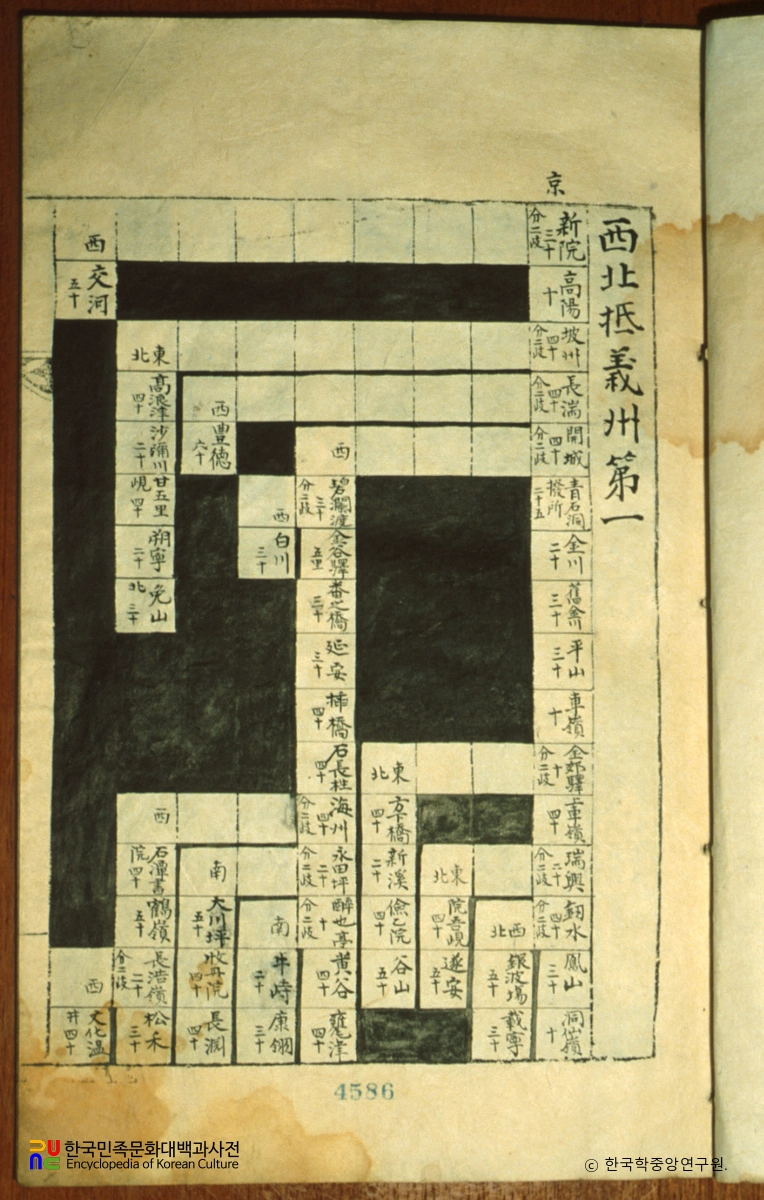 京
西北抵義州第一
新院 三十 分二歧
高陽 十
坡州 四十 分二歧
長湍 四十 分二歧
開城 四十 分二歧
青石洞 撥所 二十五
金川 二十
舊金川 三十
平山 三十
車嶺 十
金郊驛 十 分二歧
土車嶺 四十
瑞興 六十 分二歧
釼水 四十 分二歧
鳳山 三十
洞仙嶺 十
西北
銀波場 五十
載寧 三十
東北
院吾峴 四十
遂安 五十
東北
方下橋 四十
新溪 二十
儉乙院 四十
谷山 五十
西
碧瀾渡 三十 分二歧
金谷驛 五里
番之橋 三十
延安 三十
揷橋 四十
石長柱 四十
海州 四十 分二歧
永田坪 二十 分二歧
醉也亭 十 分二歧
黃谷 四十
甕津 四十
西
白川 三十
南
牛峙 二十
康翎 三十
西
豊德 六十
南
大川坪 五十
收丹院 四十
長淵 四十
東北
高浪津 四十
沙彌川 二十
甘五里峴 四十
朔寧 二十
兔山 北 三十
西
石潭書院 四十
鶴嶺 五十
長浩嶺 二十 分二歧
松禾 三十
西
交河 五十
西
文化溫井 四十
4586
한국민족문화대백과사전
Encyclopedia of Korean Culture
© 한국학중앙연구원.